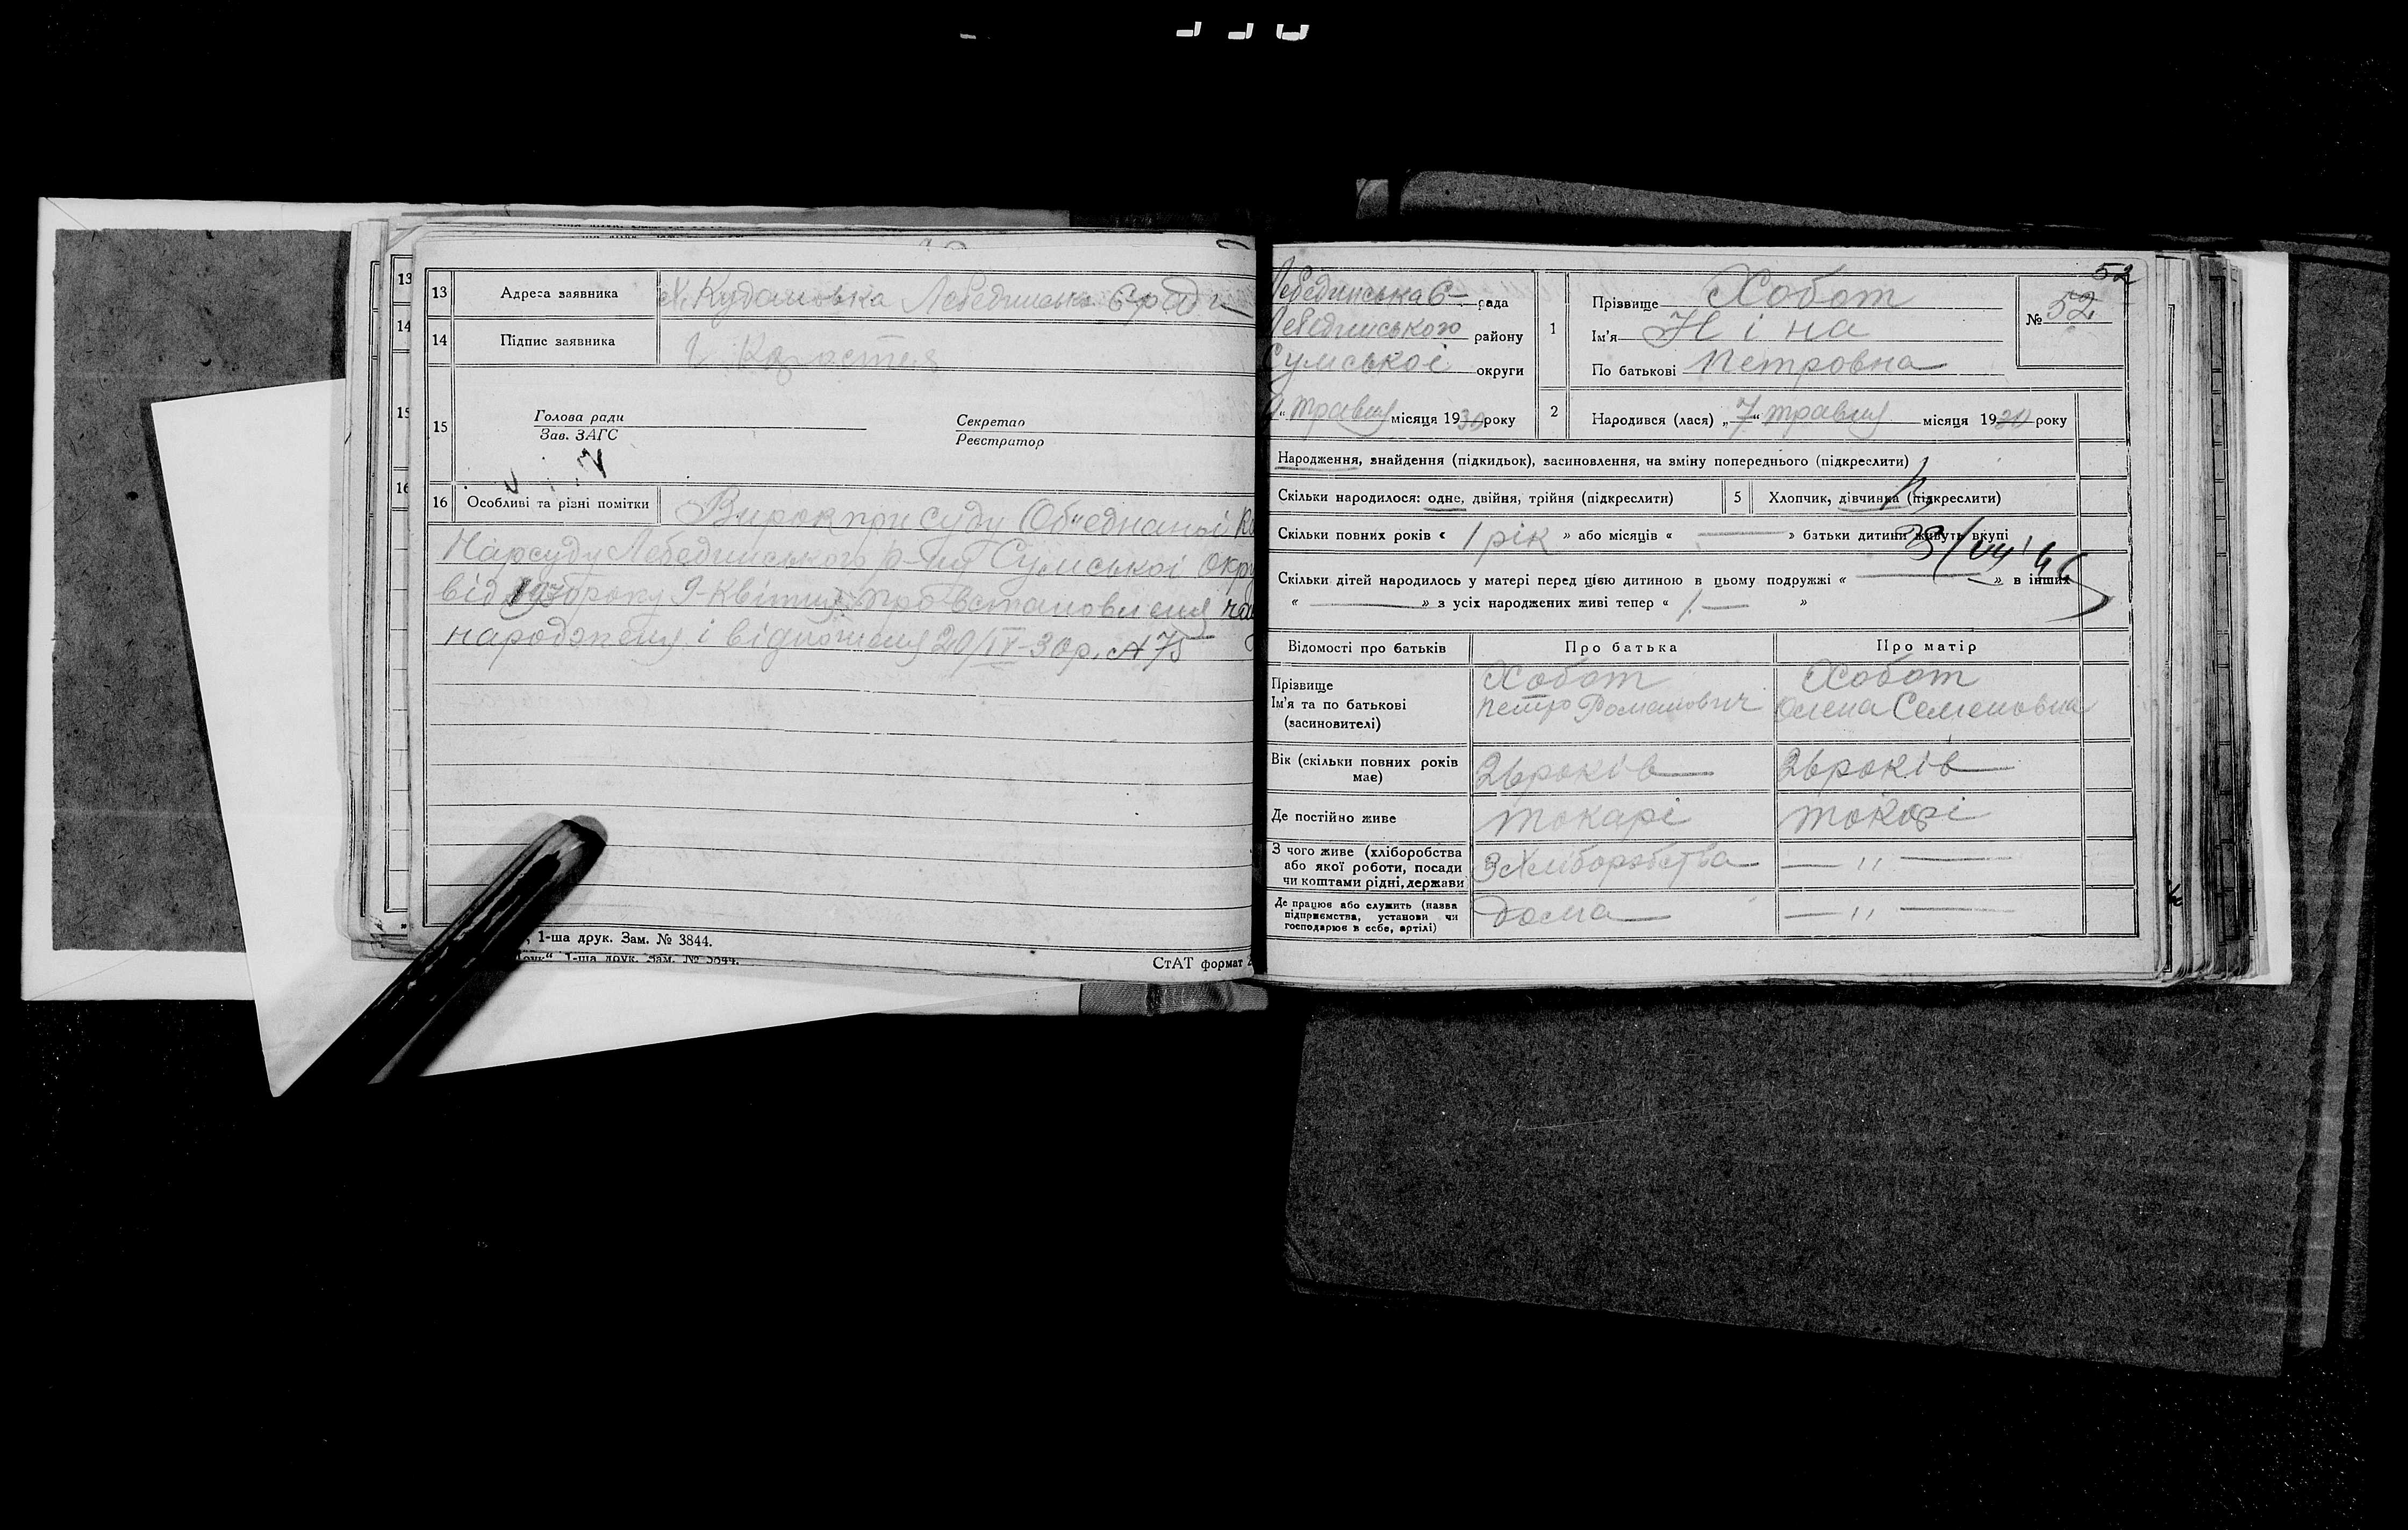 13 Адреса заявника Х. Кудановка Лебединська С-ради
14 Підпис заявника
15 Голова ради
Зав. ЗАГС
Секретар
Реєстратор
16 Особливі та різні помітки Вирок при суду Об'єднаної
Нарсуду Лебединського р-ну Сумської окру
від 1930 року 9-квітня про встановлення
народження і відношення 20/IV-30р. № 75
, 1-ша друк. Зам. № 3844.
1-ша друк. Зам. № 3844.
СтАТ формат
52
Лебединська С- рада
Лебединського району
Сумської округи
травня місяця 1930 року
1 Прізвище Хобот
Ім'я Ніна
По батькові Петровна
№ 52
2 Народився (лася) „7“ травня місяця 1930 року
Народження, знайдення (підкидьок), засиновлення, на зміну попереднього (підкреслити)
Скільки народилося: одне, двійня, трійня (підкреслити) 5 Хлопчик, дівчинка (підкреслити)
Скільки повних років « 1 рік » або місяців « — » батьки дитини живуть вкупі
Скільки дітей народилось у матері перед цією дитиною в цьому подружжі « — » в інших
« — » з усіх народжених живі тепер « 1 — »
Відомості про батьків Про батька Про матір
Прізвище Хобот Хобот
Ім'я та по батькові Петро Романович Олена Семеновна
(засиновителі)
Вік (скільки повних років має) 26 років 26 років
Де постійно живе Токарі Токарі
З чого живе (хліборобства
або якої роботи, посади
чи коштами рідні, держави З Хліборобства — ,, —
Де працює або служить (назва
підприємства, установи чи
господарює в себе, артілі) Дома — ,, —